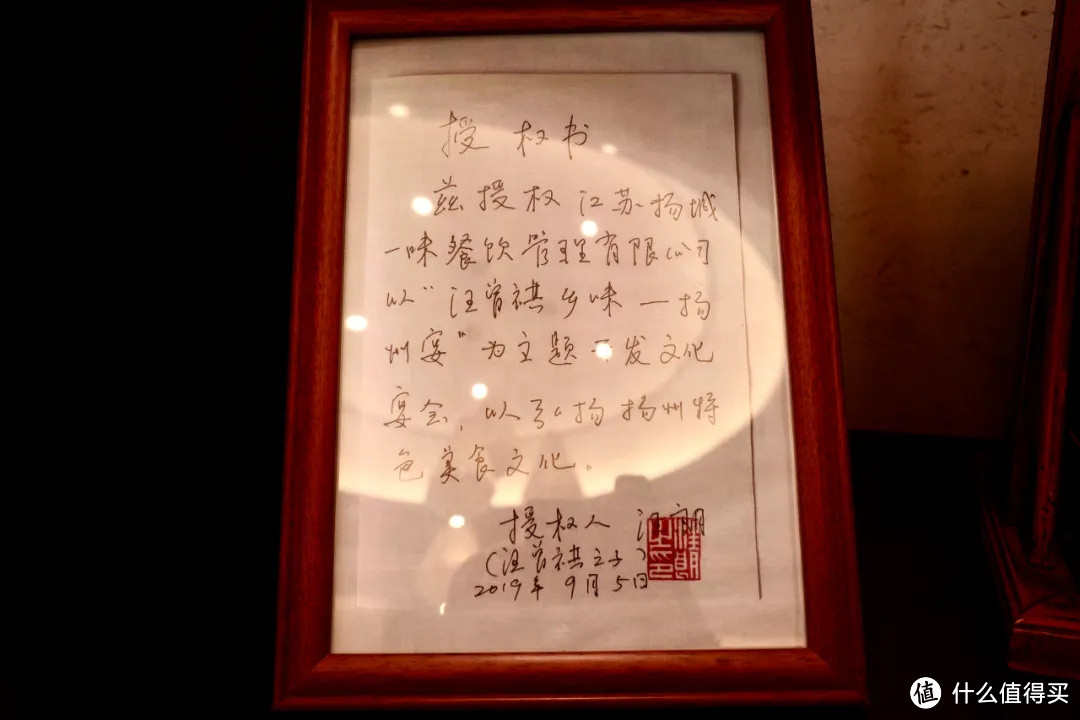 授权书
兹授权江苏扬城
一味餐饮管理有限公司
以“汪曾祺乡味—扬
州宴”为主题开发文化
宴会，以弘扬扬州特
色美食文化。
授权人 汪朗
（汪曾祺之子）
2019年9月5日
值 什么值得买